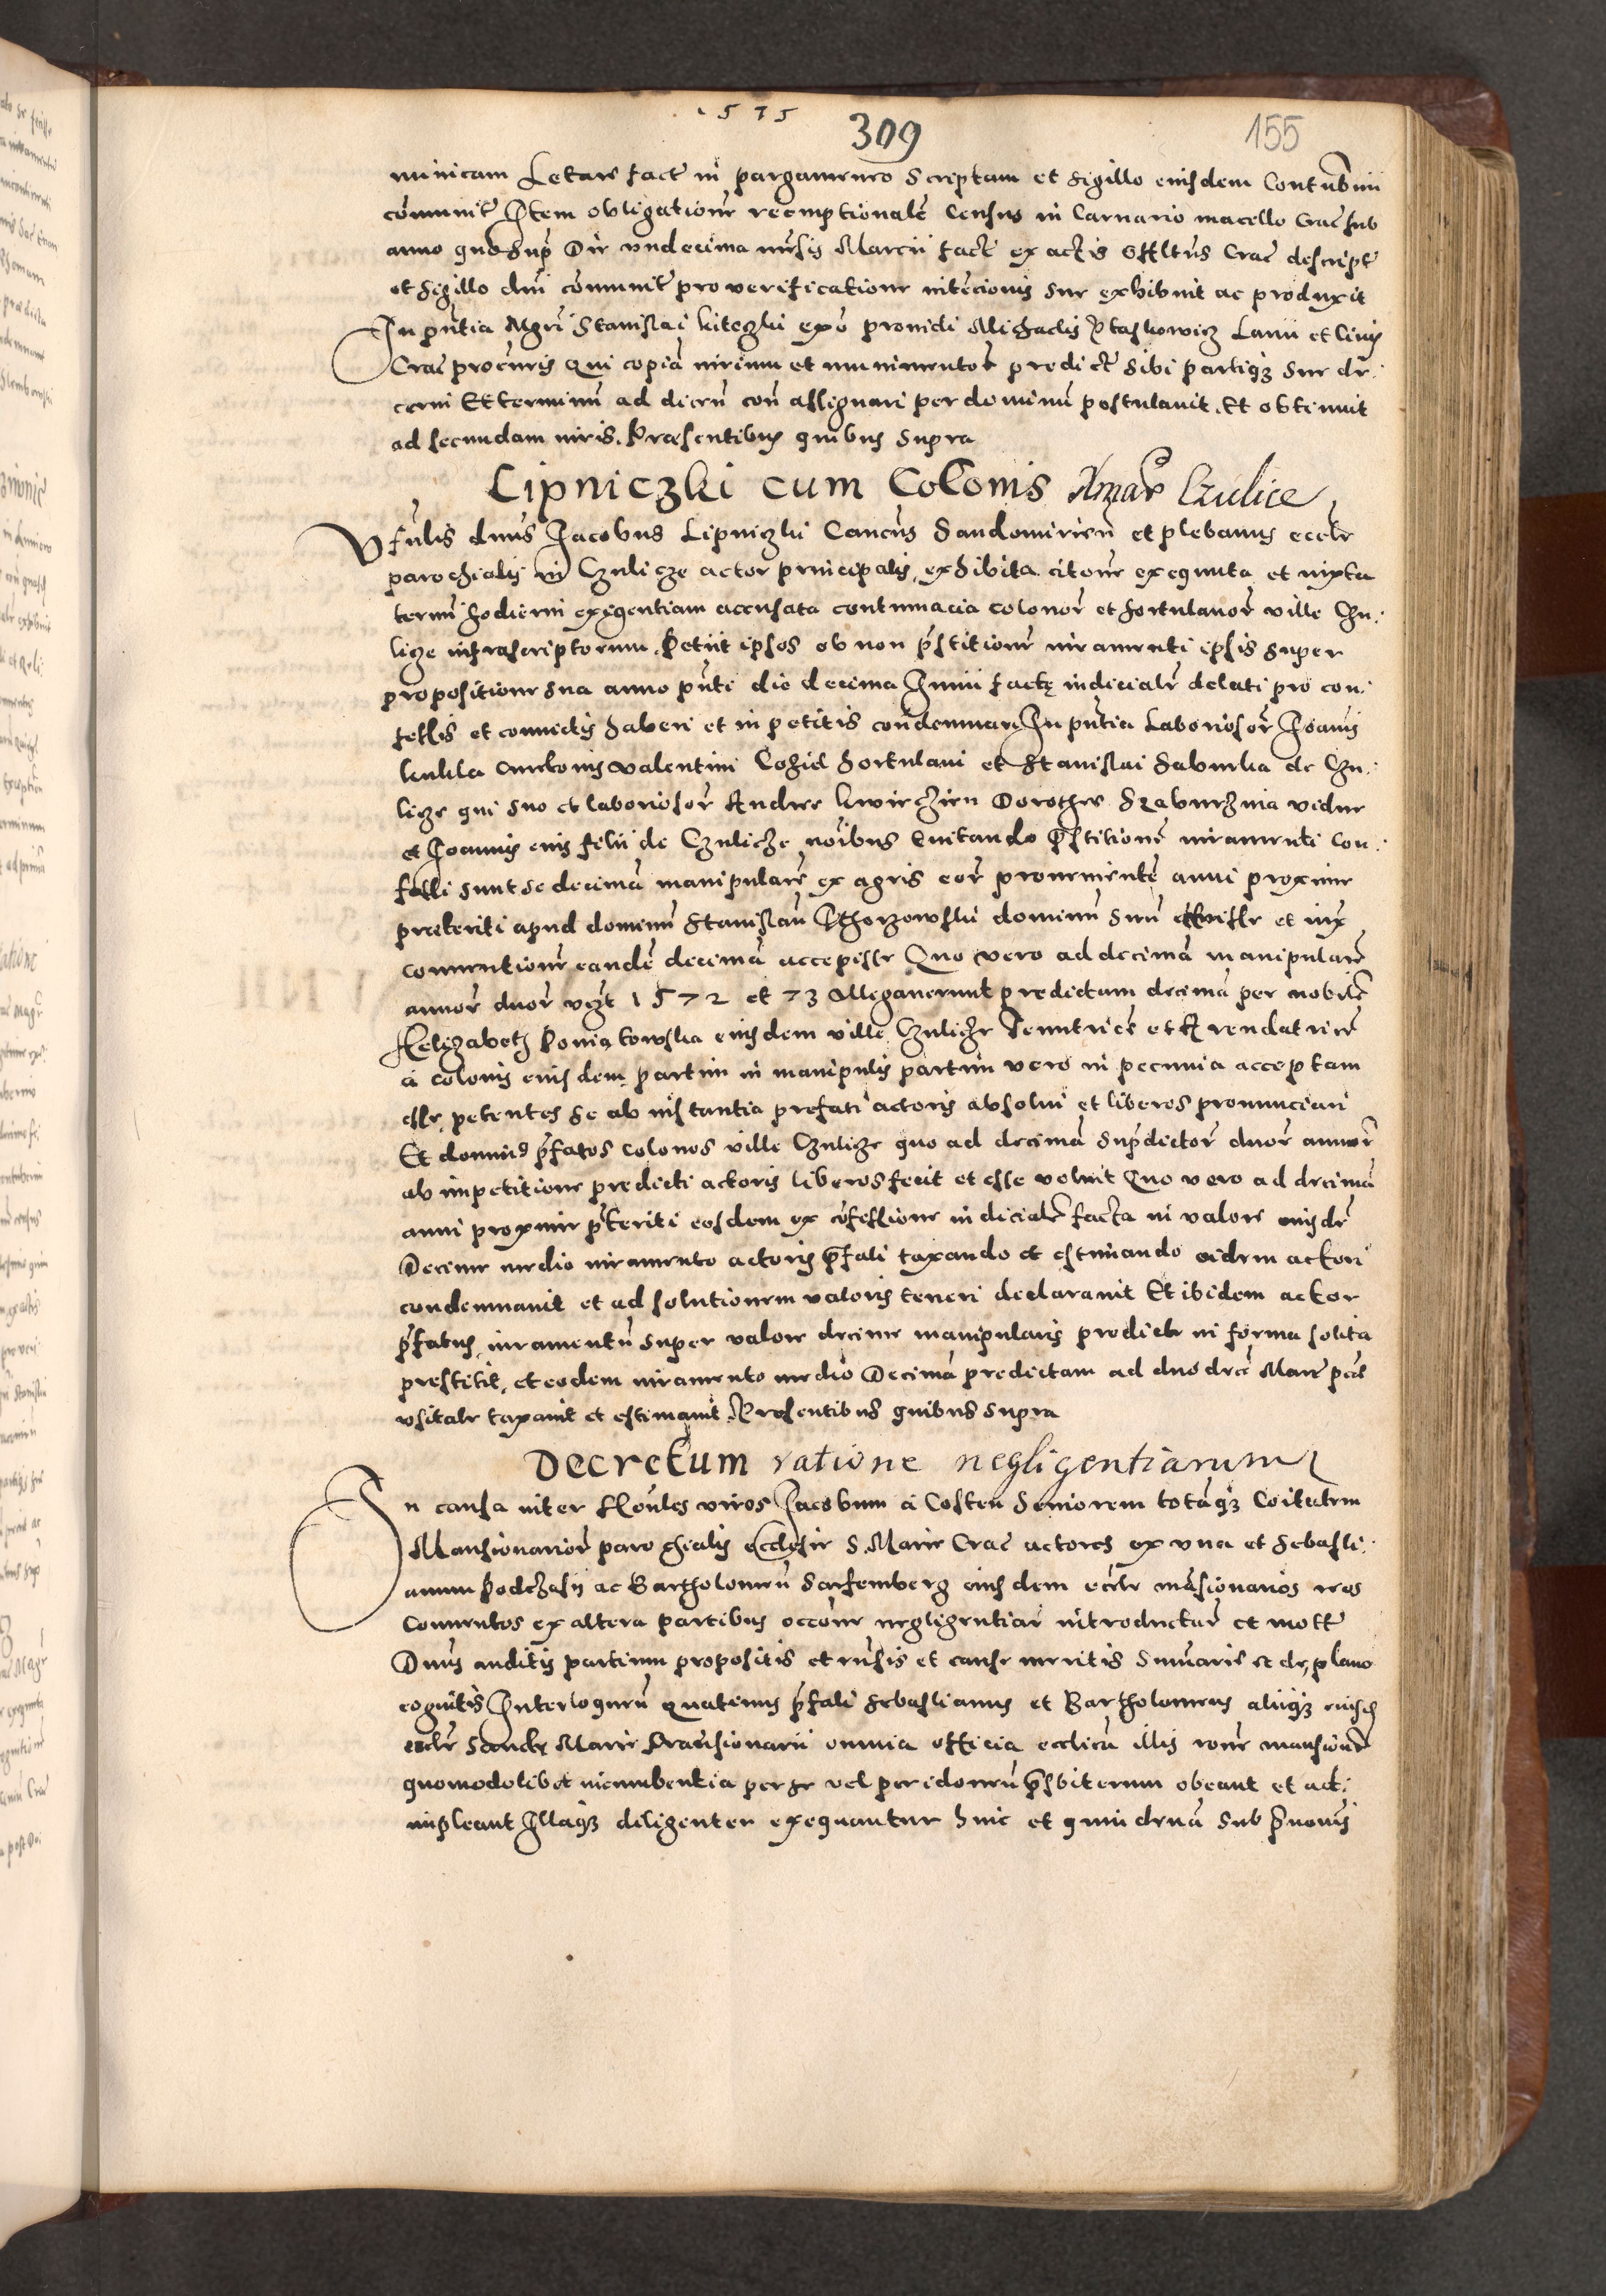 1575
309
155
minicam Letare fact in pargameneo Scriptam et sigillo eiusdem Contubnii
communit Item obligatione reemptionale Census in Carnario macello Crac sub
anno quo supra Die undecima mensis Marcii fact ex actis offltus Crac descript
et sigillo dni communit pro verificatione intencionis sue exhibuit ac produxit
In pntia Mgri Stanislai kiteczki expo prouidi Michaelis Ptaskowicz Lanii et Ciuis
Crac procuris Qui copia iurium et munimentor predict sibi partiqz sue de.
cerni Et terminu ad dicen con assignari per dominu postulauit. Et obtinuit
ad secundam iuris. Præsentibus quibus supra
Lipniczki cum Colonis Czulice
Vfulis dnus Jacobus Lipniczki Cancus Sandomirien et plebanus eccle
parochialis in Czulicze actor principalis exhibita citone exequuta et iuxta
termi hodierni exigentiam accusata contumacia colonor et hortulanor ville Czu.
licze infrascriptorum. Petiit ipsos ob non pstitione iuramenti ipsis super
propositione sua anno pnti die decima Junii factę iudicialr delati pro con.
fessis et conuictis haberi et in petitis condemnari In pntia Laboriosor Joanis
kukla Valentini Coziel hortulani et Stanislai Saburka de Czu.
licze qui suo et laboriosor Andree kwieczien Dorothee Szaburzina vidue
et Joannis eius filii de Czulicze noibus Euitando pstitione iuramenti Con.
fessi sunt se decima manipulare ex agris eor proueniente anni proxime
præteriti apud dominu Stanislau dominu suu et iux
conuentione eande decima accepisse Quo vero ad decima manipulare
annor duor vizt 1572 et 73 Allegauerunt predictam decima per nobile
Helizabeth Poniatowska eiusdem ville Czulicze Tenutrice et Arendatrice
a colonis eiusdem partim in manipulis partim vero in pecunia acceptam
esse, petentes se ab instantia prefati actoris absolui et liberos pronunciari
Et dominus pfatos colonos ville Czulicze quo ad decima supdictor duor annor
ab impetitione predicti actoris liberos fecit et esse voluit Quo vero ad decima
anni proxime pteriti eosdem ex cofessione iudicialr facta in valore eiusde
Decime medio iuramento actoris pfati taxando et estimando eidem actori
condemnauit et ad solutionem valoris teneri declarauit Et ibidem actor
pfatus iuramentu super valore decime manipularis predicte in forma solita
prestitit, et eodem iuramento medio Decima predictam ad duodec Marc pec
vsitale taxauit et estimauit Presentibus quibus supra
Decretum ratione negligentiarum
In causa inter Honles viros Jacobum a Costen Seniorem totaqz Coitatem
Mansionarior parochialis ecclesie S. Marie Crac actores ex una et Sebasti.
anum Podchasy ac Bartholomeu Sarfemberg eiusdem eccle masionarios reos
Conuentos ex altera partibus occone negligentiar introductar et mott
Dnus auditis partium propositis et rnsis et cause meritis Sumarie et de plano
cognitis Interloquen quatinus pfati Sebastianus et Bartholomeus aliiqz eiusd
eccle Sancte Marie Mansionarii omnia officia ecclicu illis rone mansionar
quomodolibet incumbentia per se vel per idoneu psbiterum obeant et ad.
impleant Illaqz diligenter exequantur hinc et quindena sub penonis